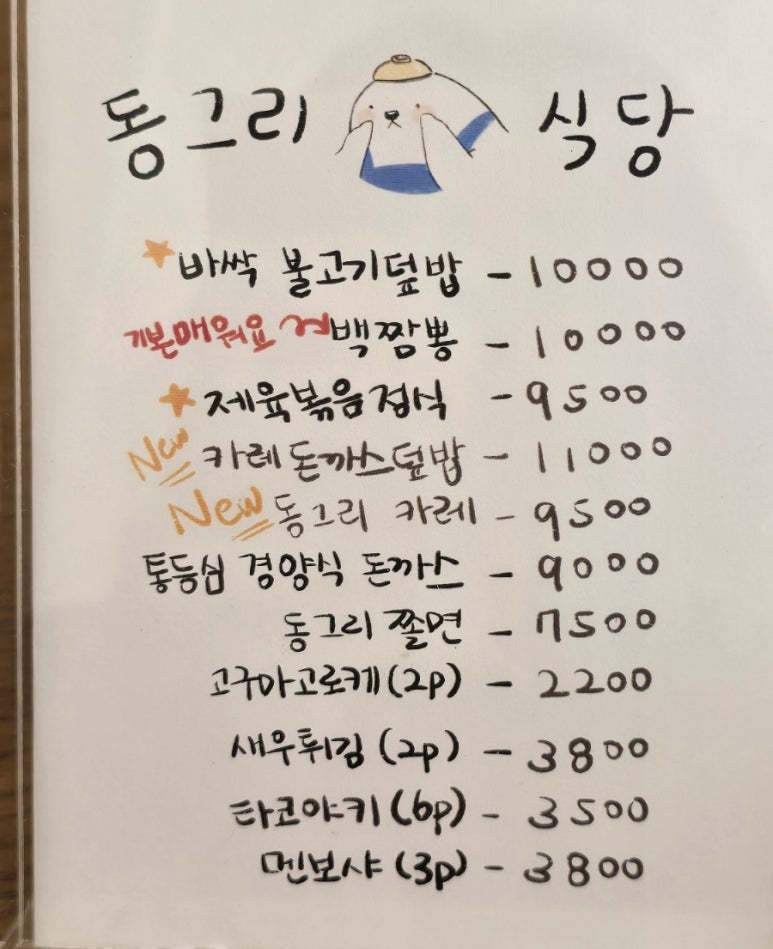 동그리 식당
바싹 불고기덮밥 - 10000
기본매워요 백짬뽕 - 10000
제육볶음정식 - 9500
New 카레돈까스덮밥 - 11000
New 동그리 카레 - 9500
통등심 경양식 돈까스 - 9000
동그리 쫄면 - 7500
고구마고로케(2p) - 2200
새우튀김(2p) - 3800
타코야키(6p) - 3500
멘보샤(3p) - 3800